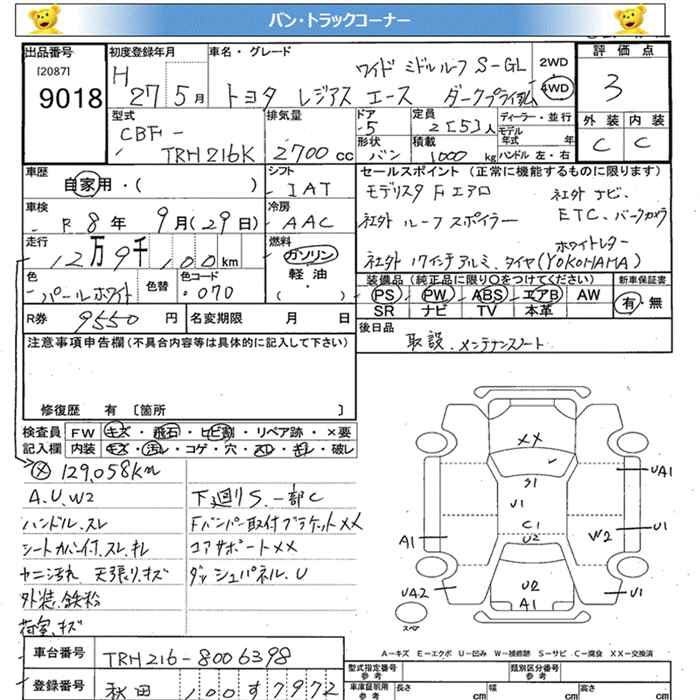 バン・トラックコーナー
出品番号 初度登録年月 車名・グレード 評価点
[2087] H 27年 5月 ワイド ミドルルーフ S-GL 2WD 3
9018 トヨタ レジアス エース ダークプライム 4WD
型式 排気量 ドア 定員 ディーラー・並行 外装 内装
CBF- 5 2[5]人 モデル年式 年 C C
TRH216K 2700cc 形状 バン 積載 1000kg ハンドル 左・右
車歴 シフト セールスポイント (正常に機能するものに限ります)
自家用・( ) IAT モデリスタ Fエアロ 社外 ナビ.
車検 冷房 社外 ルーフスポイラー ETC. バックカメラ
R 8年 9月(29日) AAC ホワイトレター
走行 燃料 社外 17インチアルミ、タイヤ(YOKOHAMA)
12万9千100km ガソリン
色 色替 色コード 軽油 装備品 (純正品に限り○をつけてください) 新車保証書
パールホワイト 070 ( ) PS PW ABS エアB AW 有・無
SR ナビ TV 本革
R券 9550円 名変期限 月 日 後日品
注意事項申告欄(不具合内容等は具体的に記入して下さい) 取説、メンテナンスノート
修復歴 有 [箇所 ]
検査員 FW キズ・飛石・ヒビ割・リペア跡・×要
記入欄 内装 キズ・汚レ・コゲ・穴・スレ・キレ・破レ
129,058km
A.U.W2 下廻りS.一部C
ハンドル.スレ Fバンパー取付ブラケットXX
シートカバー付.スレ.キレ コアサポートXX
ヤニ汚れ 天張り.キズ ダッシュパネル.U
外装.鉄粉
荷室.キズ
XX
S1
U1
C1
U2
U2
A1
A1
UA2
UA1
W2 U1
U1
スペア
A-キズ E-エクボ U-凹み W-補修跡 S-サビ C-腐食 XX-交換済
車台番号 TRH216-8006398 型式指定番号 参考 類別区分番号 参考
登録番号 秋田 100す7972 車庫証明用 参考 長さ cm 幅 cm 高さ cm